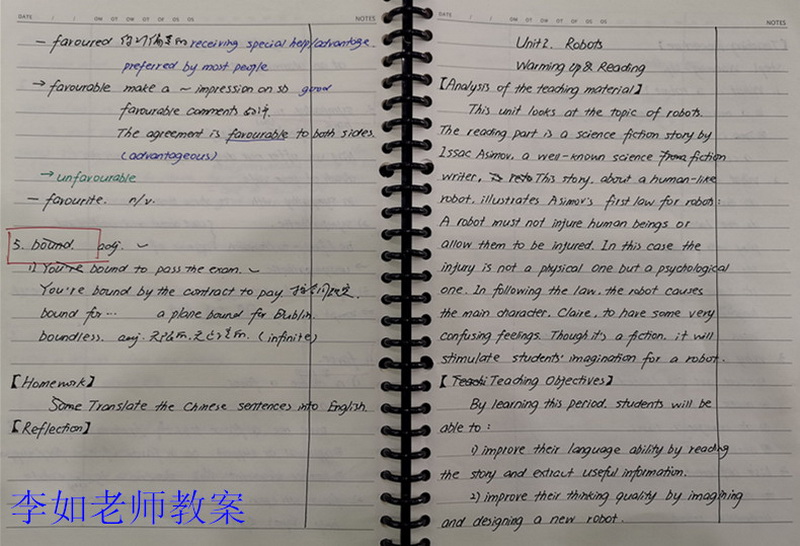 DATE / / NOTES
— favoured 得到偏爱的 receiving special help/advantage.
preferred by most people
→ favourable make a ~ impression on sb good
favourable comments 好评.
The agreement is favourable to both sides.
(advantageous)
→ unfavourable
— favourite. n/v.
5. bound. adj.
1) You're bound to pass the exam.
You're bound by the contract to pay.
bound for… a plane bound for Dublin.
boundless. adj. (infinite)
【Homework】
Some Translate the Chinese sentences into English.
【Reflection】
李如老师教案
DATE / / NOTES
Unit2. Robots
Warming Up & Reading
【Analysis of the teaching material】
This unit looks at the topic of robots.
The reading part is a science fiction story by
Issac Asimov, a well-known science fiction
writer. This story, about a human-like
robot, illustrates Asimov's first law for robots:
A robot must not injure human beings or
allow them to be injured. In this case the
injury is not a physical one but a psychological
one. In following the law, the robot causes
the main character, Claire, to have some very
confusing feelings. Though it's a fiction, it will
stimulate students' imagination for a robot.
【Teaching Objectives】
By learning this period, students will be
able to:
1) improve their language ability by reading
the story and extract useful information.
2) improve their thinking quality by imagining
and designing a new robot.